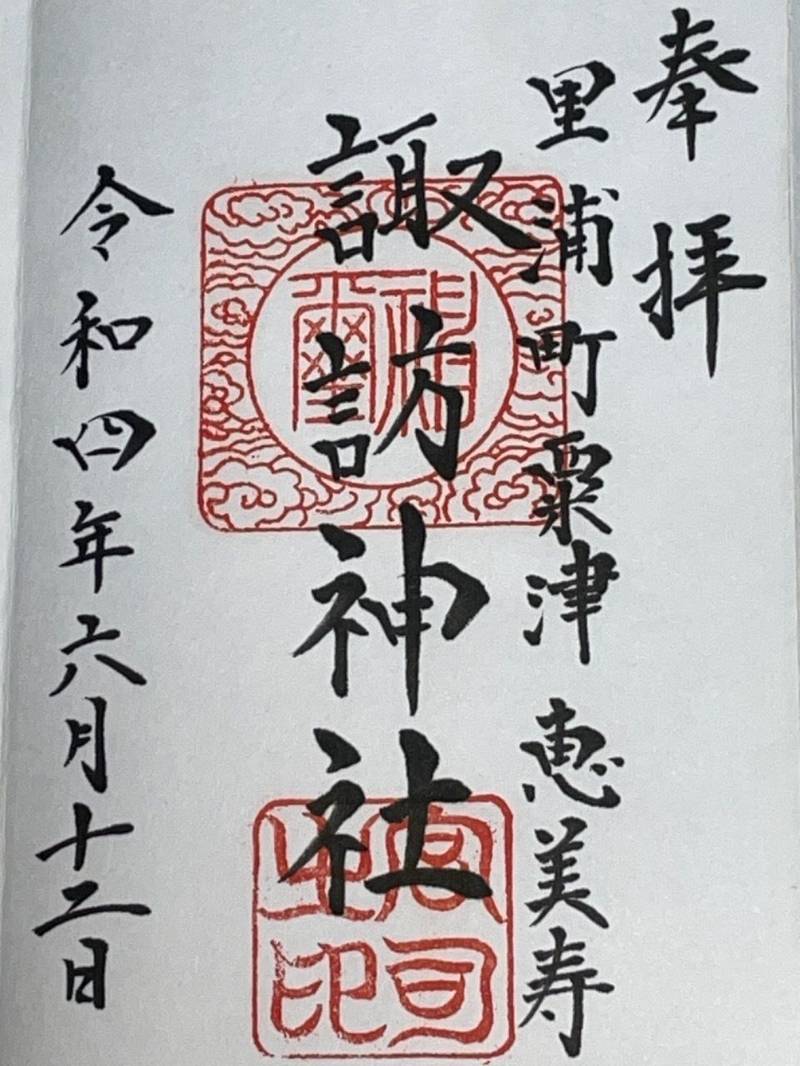 奉拝
里浦町粟津 恵美寿
諏訪神社
令和四年六月十二日
神璽
宮司之印